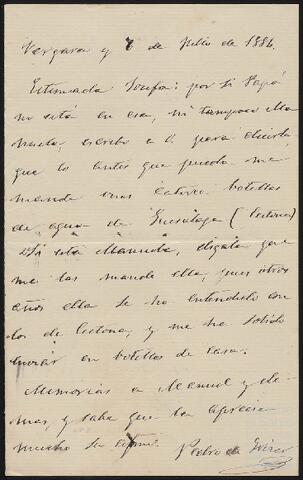 Vergara y 7 de Julio de 1886.
Estimada Josefa: por si Papá
no está en esa, ni tampoco Ma
nuela, escribo a V. para decirle
que lo antes que pueda me
mande unas catorce botellas
de agua de Guesalaga (Cestona)
Si está Manuela, dígala que
me las mande ella, pues otros
años ella se ha entendido con
los de Cestona, y me ha solido
enviar en botellas de casa.
Memorias a Manuel y de-
mas, y sabe que la aprecia
mucho su
Pedro de